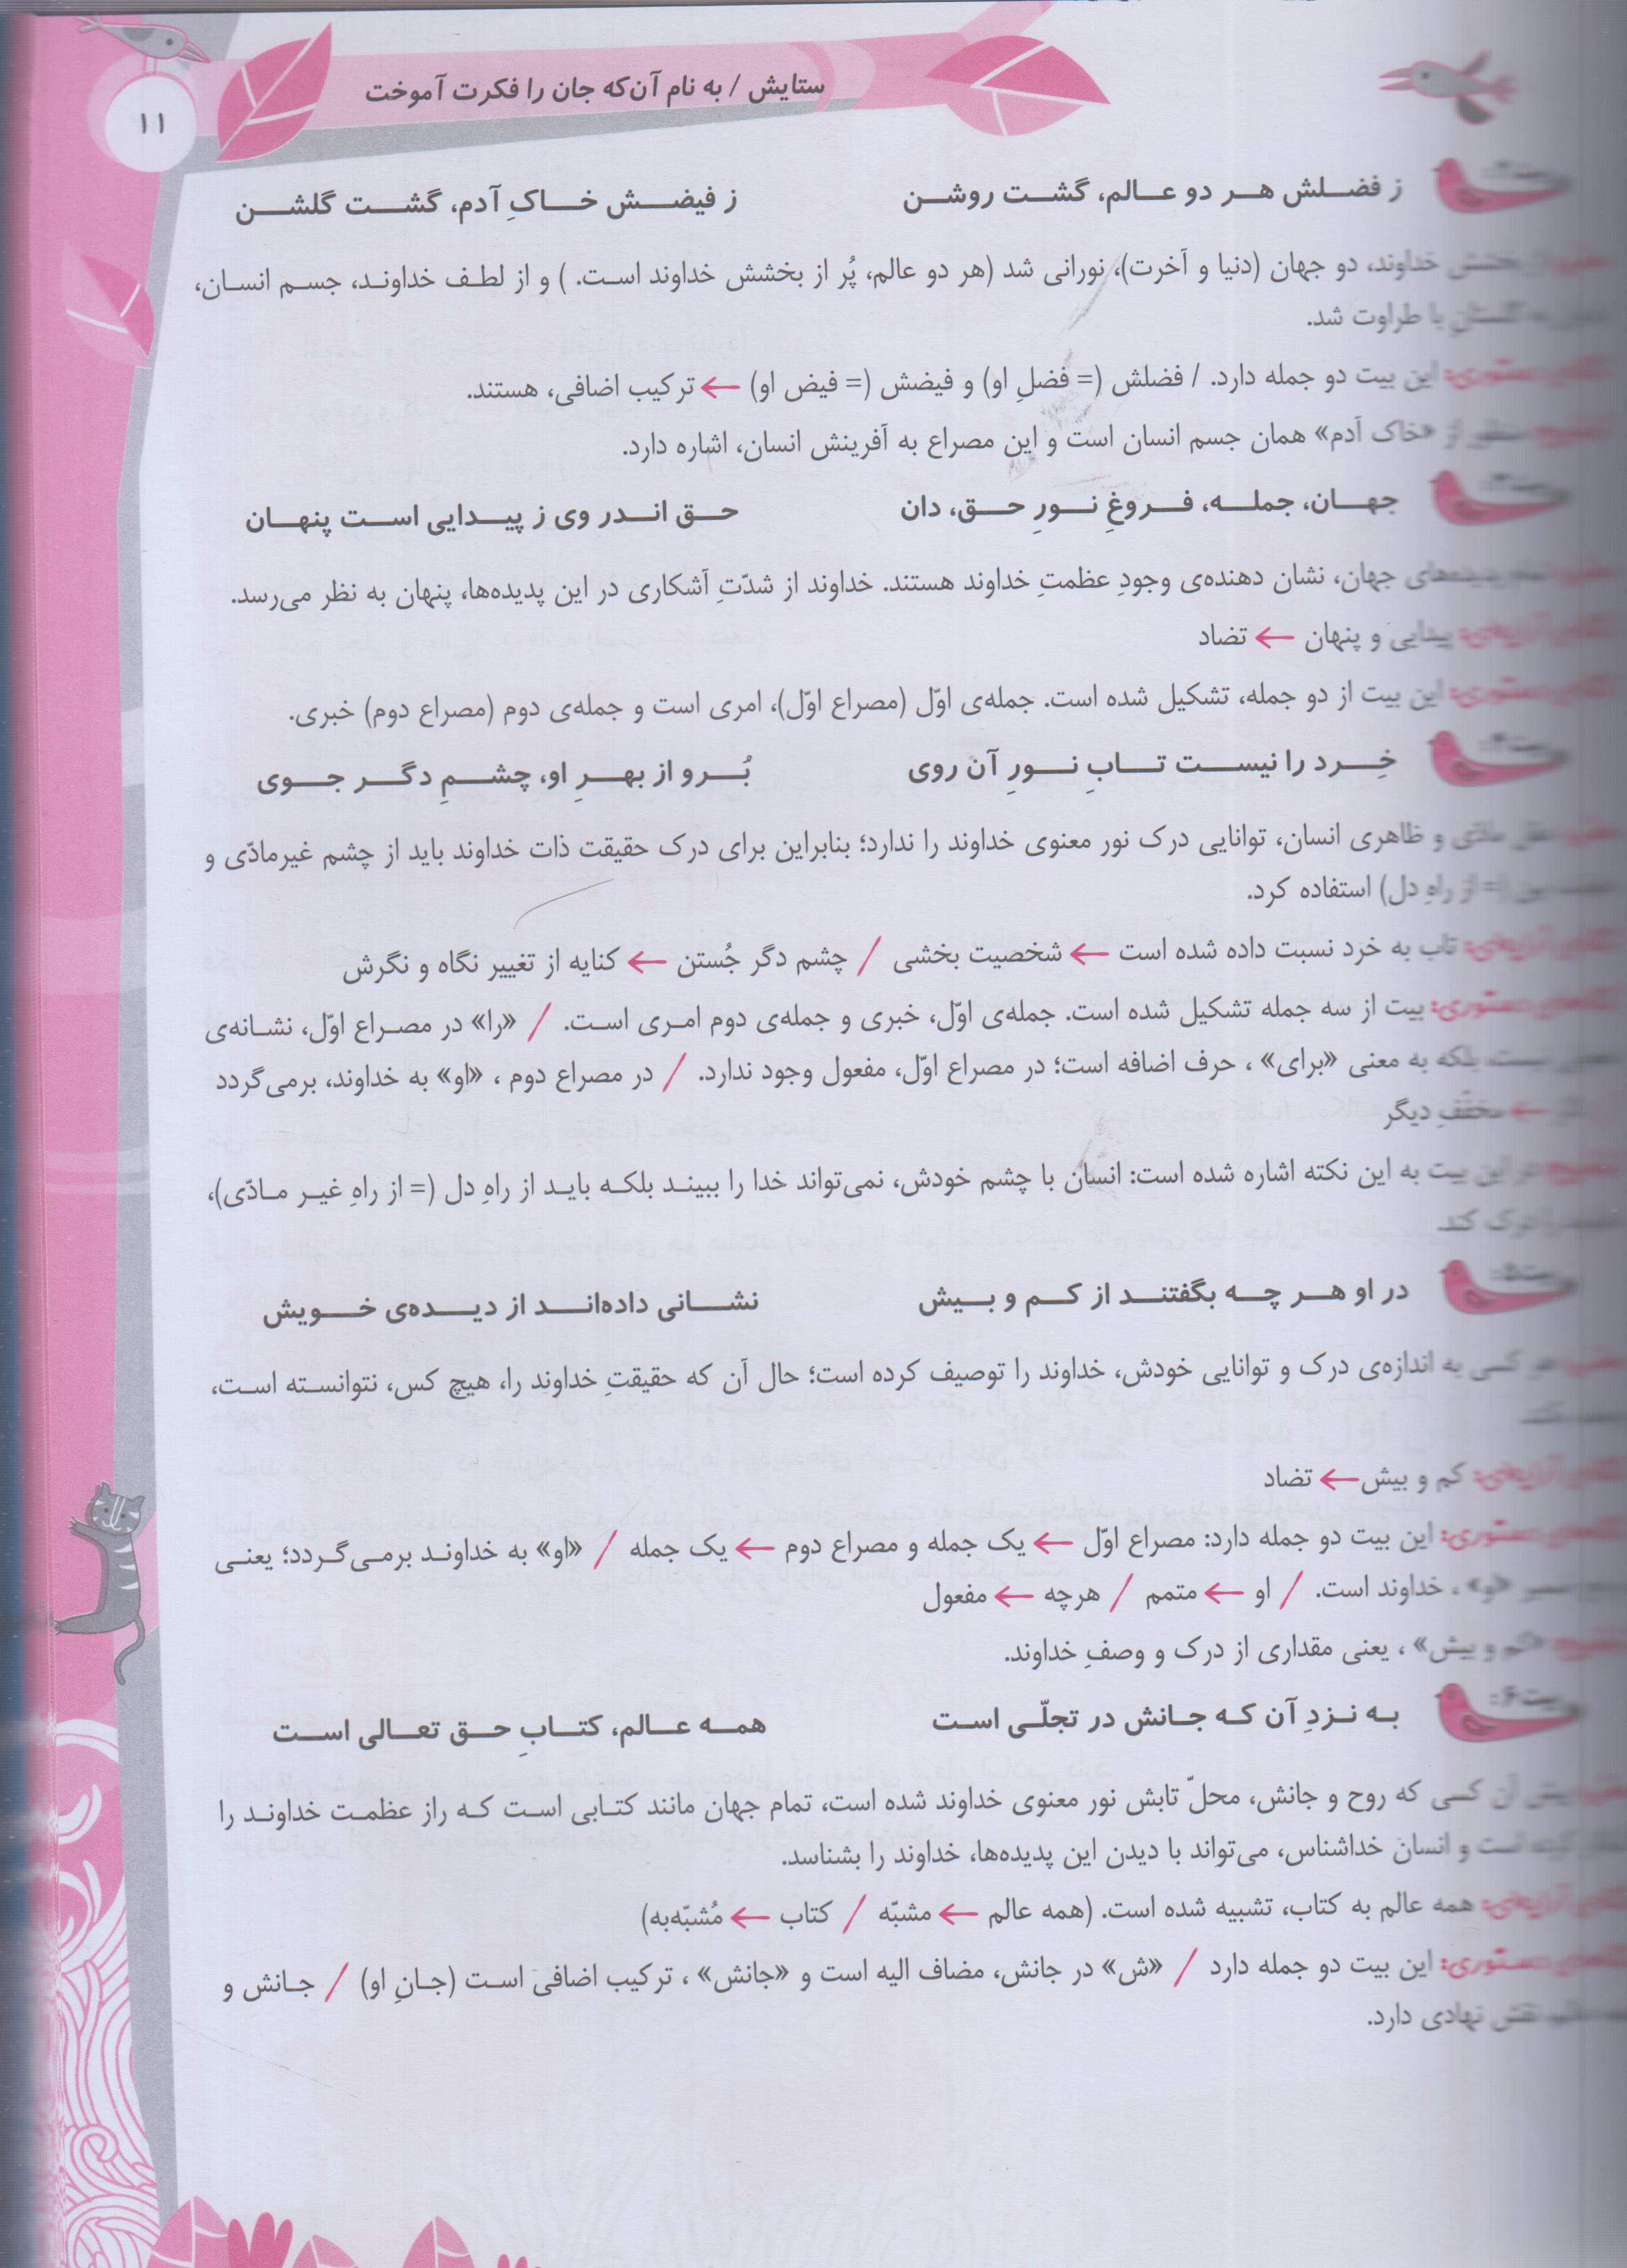 ستایش / به نام آن‌که جان را فکرت آموخت
۱۱
ز فضلش هر دو عالم، گشت روشن ز فیضش خاکِ آدم، گشت گلشن
خداوند، دو جهان (دنیا و آخرت)، نورانی شد (هر دو عالم، پُر از بخشش خداوند است. ) و از لطف خداوند، جسم انسان،
گلستان با طراوت شد.
دستوری: این بیت دو جمله دارد. / فضلش (= فضلِ او) و فیضش (= فیض او) ← ترکیب اضافی، هستند.
از «خاک آدم» همان جسم انسان است و این مصراع به آفرینش انسان، اشاره دارد.
بیت ۳: جهان، جمله، فروغِ نورِ حق، دان حق اندر وی ز پیدایی است پنهان
پدیده‌های جهان، نشان دهنده‌ی وجودِ عظمتِ خداوند هستند. خداوند از شدّتِ آشکاری در این پدیده‌ها، پنهان به نظر می‌رسد.
پیدایی و پنهان ← تضاد
دستوری: این بیت از دو جمله، تشکیل شده است. جمله‌ی اوّل (مصراع اوّل)، امری است و جمله‌ی دوم (مصراع دوم) خبری.
بیت ۴: خِرد را نیست تابِ نورِ آن روی بُرو از بهرِ او، چشمِ دگر جوی
مادّی و ظاهری انسان، توانایی درک نور معنوی خداوند را ندارد؛ بنابراین برای درک حقیقت ذات خداوند باید از چشم غیرمادّی و
(= از راهِ دل) استفاده کرد.
تاب به خرد نسبت داده شده است ← شخصیت بخشی / چشم دگر جُستن ← کنایه از تغییر نگاه و نگرش
دستوری: بیت از سه جمله تشکیل شده است. جمله‌ی اوّل، خبری و جمله‌ی دوم امری است. / «را» در مصراع اوّل، نشانه‌ی
نیست، بلکه به معنی «برای» ، حرف اضافه است؛ در مصراع اوّل، مفعول وجود ندارد. / در مصراع دوم ، «او» به خداوند، برمی‌گردد
← مخفّفِ دیگر
در این بیت به این نکته اشاره شده است: انسان با چشم خودش، نمی‌تواند خدا را ببیند بلکه باید از راهِ دل (= از راهِ غیر مادّی)،
درک کند.
بیت ۵: در او هر چه بگفتند از کم و بیش نشانی داده‌اند از دیده‌ی خویش
هر کسی به اندازه‌ی درک و توانایی خودش، خداوند را توصیف کرده است؛ حال آن که حقیقتِ خداوند را، هیچ کس، نتوانسته است،
کم و بیش ← تضاد
دستوری: این بیت دو جمله دارد: مصراع اوّل ← یک جمله و مصراع دوم ← یک جمله / «او» به خداوند برمی‌گردد؛ یعنی
«او» ، خداوند است. / او ← متمم / هرچه ← مفعول
«کم و بیش» ، یعنی مقداری از درک و وصفِ خداوند.
بیت ۶: به نزدِ آن که جانش در تجلّی است همه عالم، کتابِ حق تعالی است
پیش آن کسی که روح و جانش، محلّ تابش نور معنوی خداوند شده است، تمام جهان مانند کتابی است که راز عظمت خداوند را
است و انسان خداشناس، می‌تواند با دیدن این پدیده‌ها، خداوند را بشناسد.
همه عالم به کتاب، تشبیه شده است. (همه عالم ← مشبّه / کتاب ← مُشبّه‌به)
دستوری: این بیت دو جمله دارد / «ش» در جانش، مضاف الیه است و «جانش» ، ترکیب اضافی است (جانِ او) / جانش و
نقش نهادی دارد.